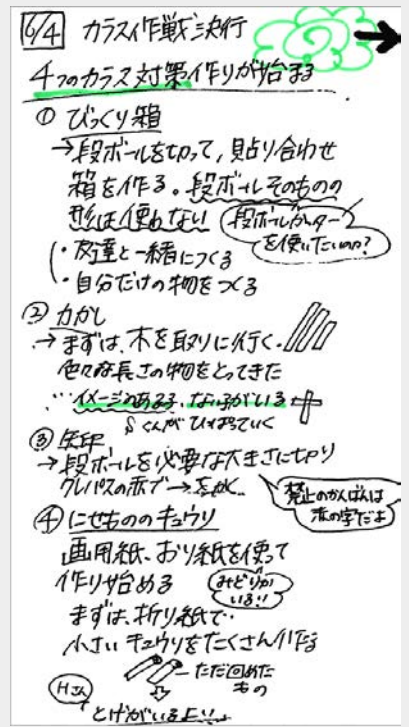 6/4 カラス作戦決行
4つのカラス対策作りが始まる
① びっくり箱
→段ボールを切って、貼り合わせ
箱を作る。段ボールそのものの
形は使わない
段ボールカッター
を使いたいのか?
・友達と一緒につくる
・自分だけの物をつくる
② かかし
→まずは、木を取りに行く。
色々な長さの物をとってきた
…イメージのある
Sくんがひっぱっていく
③ 矢印
→段ボールを必要な大きさに切り
クレパスの赤で→をかく。
禁止のかんばんは
赤の字だよ
④ にせもののキュウリ
画用紙、おり紙を使って
作り始める
みどりが
いる!!
まずは、折り紙で…
小さいキュウリをたくさん作る
ただ回めた
もの
Hさん
とげがいるよ!!